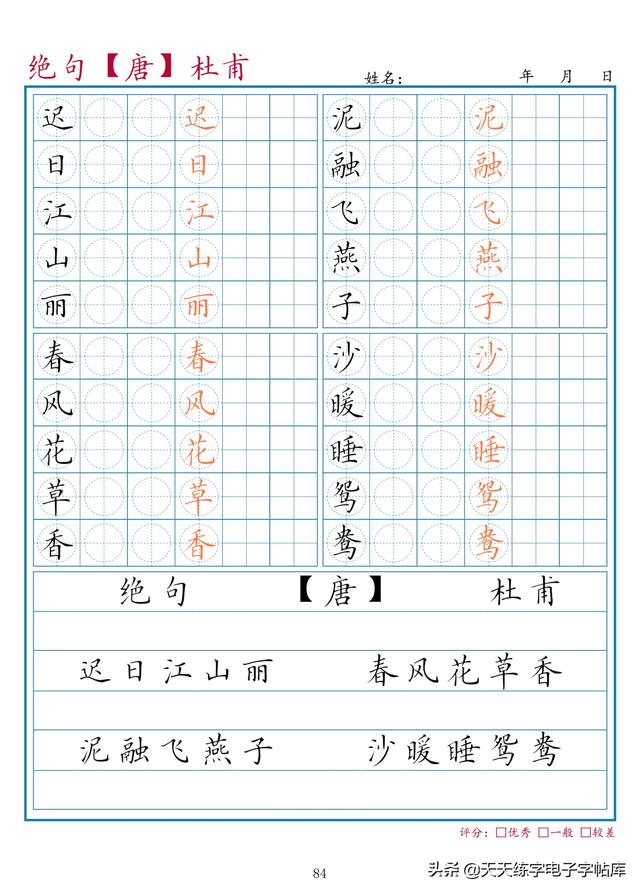 绝句【唐】杜甫
姓名: 年 月 日
迟 迟 泥 泥
日 日 融 融
江 江 飞 飞
山 山 燕 燕
丽 丽 子 子
春 春 沙 沙
风 风 暖 暖
花 花 睡 睡
草 草 鸳 鸳
香 香 鸯 鸯
绝句 【唐】 杜甫
迟日江山丽 春风花草香
泥融飞燕子 沙暖睡鸳鸯
评分: □优秀 □一般 □较差
84
头条@天天练字电子字帖库